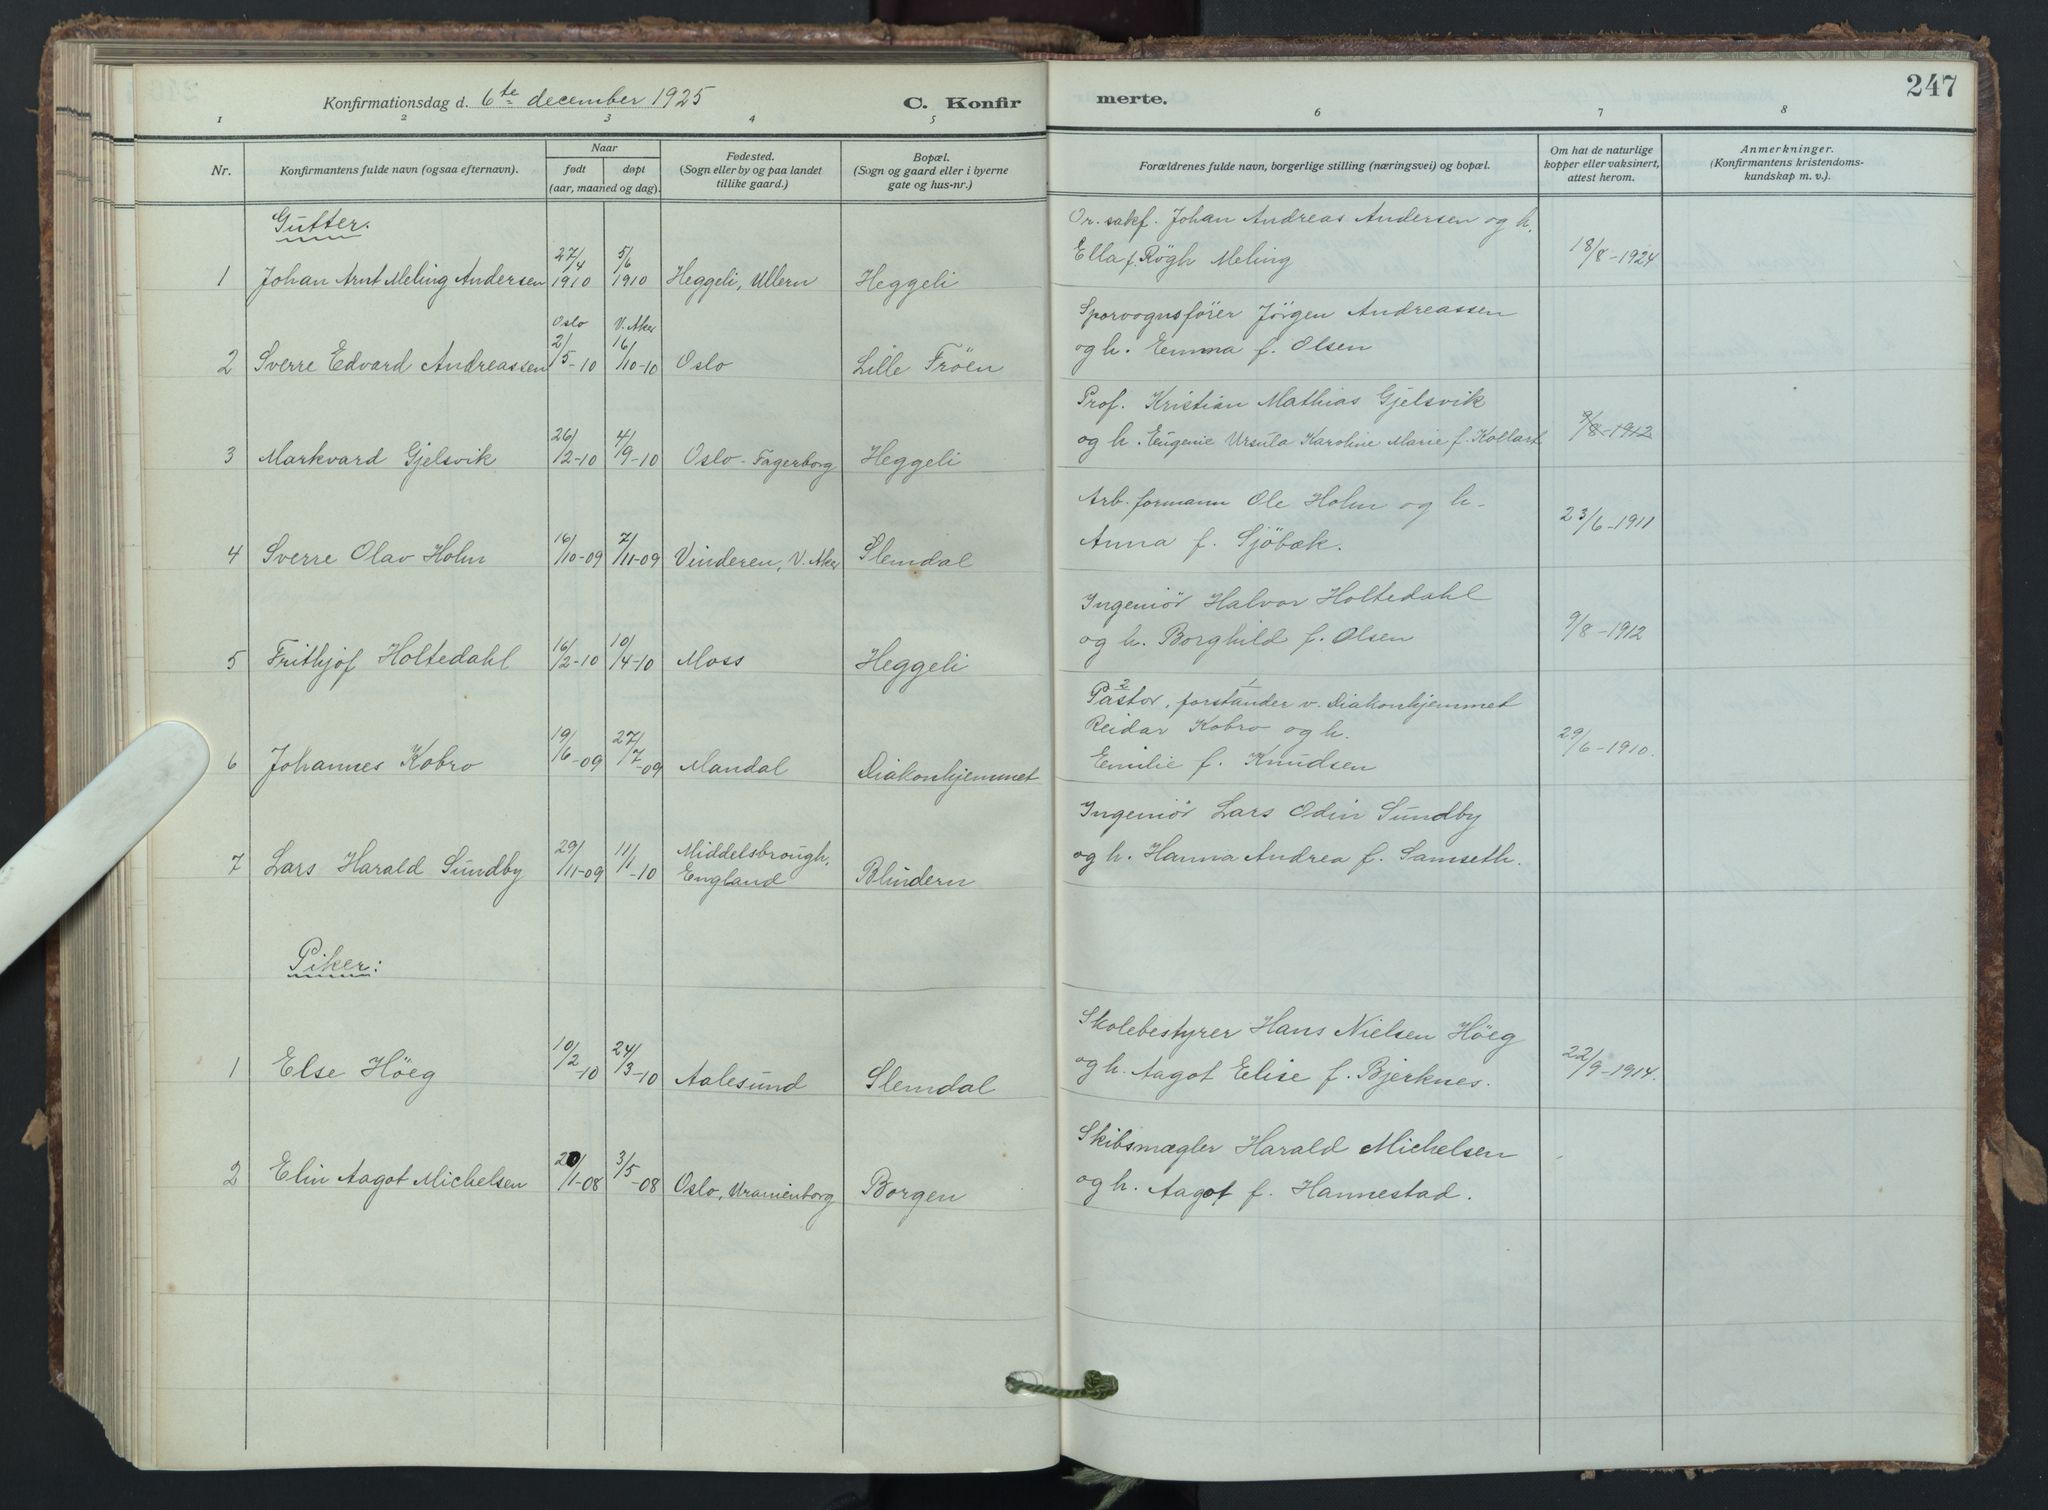 247
Konfirmationsdag d. 6te december 1925
C. Konfirmerte.
1 2 3 4 5 6 7 8
Nr.
Konfirmantens fulde navn (ogsaa efternavn).
Naar
født døpt
(aar, maaned og dag).
Fødested.
(Sogn eller by og paa landet
tillike gaard.)
Bopæl.
(Sogn og gaard eller i byerne
gate og hus-nr.)
Forældrenes fulde navn, borgerlige stilling (næringsvei) og bopæl.
Om hat de naturlige
kopper eller vaksinert,
attest herom.
Anmerkninger.
(Konfirmantens kristendoms-
kundskap m. v.).
Gutter.
Or. sakf. Johan Andreas Andersen og h.
Ella f. Røgh Meling
1 Johan Arnt Meling Andersen 27/4 1910 5/6 1910 Heggeli, Ullern Heggeli 18/8-1924
Oslo V. Aker
Sporvognsfører Jørgen Andreassen
og h. Emma f. Olsen
2 Sverre Edvard Andreassen 2/5-10 16/10-10 Oslo Lille Frøen
Prof. Kristian Mathias Gjelsvik
og h. Eugenie Ursula Karoline Marie f. Kollart
3 Markvard Gjelsvik 26/2-10 4/9-10 Oslo-Fagerborg Heggeli 9/8-1912
Arb. formann Ole Holm og h.
Anna f. Sjöbæk.
4 Sverre Olav Holm 16/10-09 7/11-09 Vinderen, V. Aker Slemdal 23/6-1911
Ingeniör Halvor Holtedahl
og h. Borghild f. Olsen
5 Frithjof Holtedahl 16/2-10 10/4-10 Moss Heggeli 9/8-1912
2 1
Pastor, forstander v. Diakonhjemmet
Reidar Kobro og h.
Emilie f. Knudsen
6 Johannes Kobro 19/6-09 27/7-09 Mandal Diakonhjemmet 29/6-1910.
Ingeniör Lars Odin Sundby
og h. Hanna Andrea f. Samseth.
7 Lars Harald Sundby 29/11-09 11/1-10 Middelsbrough, England Blindern
Piker:
Skolebestyrer Hans Nielsen Höeg
og h. Aagot Elise f. Bjerknes.
1 Else Höeg 10/2-10 24/3-10 Aalesund Slemdal 22/9-1914.
Skibsmægler Harald Michelsen
og h. Aagot f. Hannestad.
2 Elin Aagot Michelsen 20/1-08 3/5-08 Oslo, Uranienborg Borgen